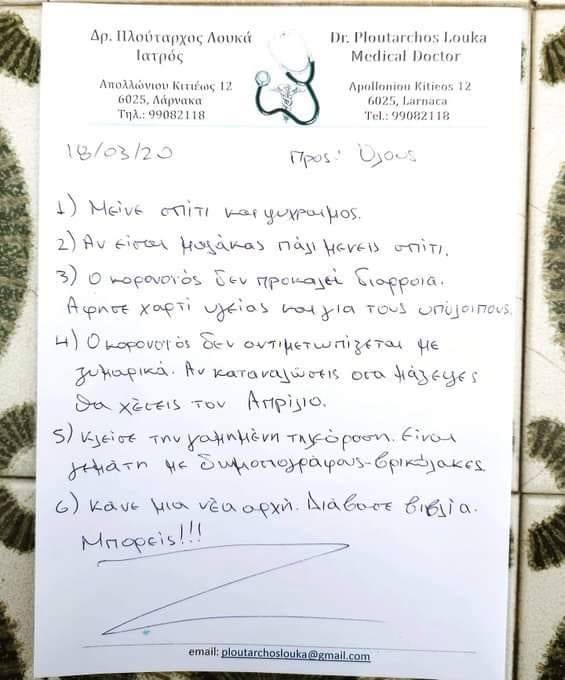 Δρ. Πλούταρχος Λουκά
Ιατρός
Απολλώνιου Κιτιέως 12
6025, Λάρνακα
Τηλ.: 99082118
Dr. Ploutarchos Louka
Medical Doctor
Apolloniou Kitieos 12
6025, Larnaca
Tel.: 99082118
18/03/20
Προς: Όλους
1) Μείνε σπίτι και ψύχραιμος.
2) Αν είσαι μαλάκας πάλι μένεις σπίτι.
3) Ο κορονοϊός δεν προκαλεί διάρροια.
Άφησε χαρτί υγείας και για τους υπόλοιπους.
4) Ο κορονοϊός δεν αντιμετωπίζεται με
ζυμαρικά. Αν καταναλώσεις όσα μάζεψες
θα χέσεις τον Απρίλιο.
5) Κλείσε την γαμημένη τηλεόραση. Είναι
γεμάτη με δημοσιογράφους-βρικόλακες.
6) Κάνε μια νέα αρχή. Διάβασε βιβλία.
Μπορείς!!!
email: ploutarchoslouka@gmail.com